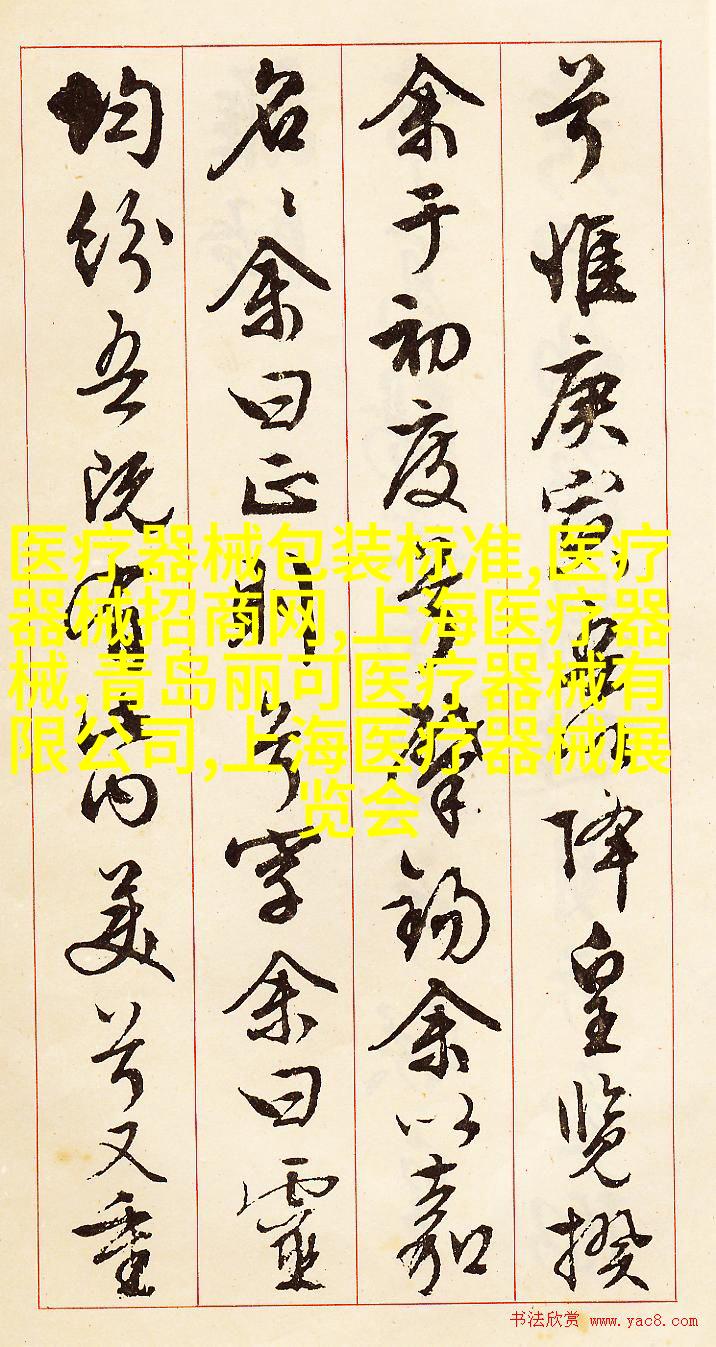 兮惟庚寅吾以降皇覽揆
余于初度兮肇錫余以嘉
名〻余曰正則兮字余曰靈
均紛吾既有此内美兮又重
医疗器械包装标准,医疗
器械招商网,上海医疗器
械,青岛丽可医疗器械有
限公司,上海医疗器械展
览会
书法欣赏 www.yac8.com